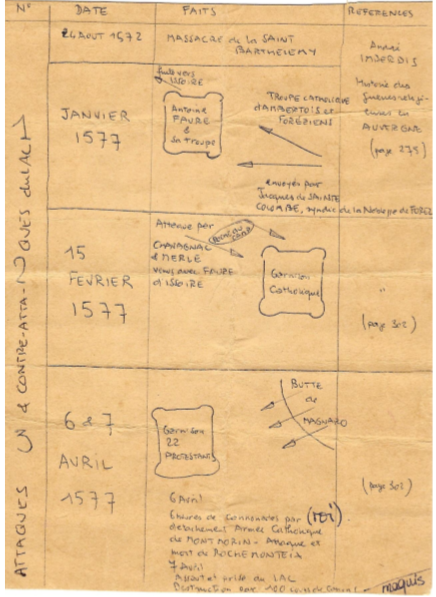 N°
DATE
FAITS
REFERENCES
ATTAQUES
& CONTRE-ATTA-
QUES du LAC
24 AOUT 1572
MASSACRE de la SAINT
BARTHELEMY
André
IMBERDIS
Histoire des
Guerres religi-
euses en
AUVERGNE
(page 275)
JANVIER
1577
fuite vers
ISSOIRE
Antoine
FAURE
&
sa troupe
TROUPE CATHOLIQUE
d'AMBERTOIS et
FORÉZIENS
envoyés par
Jacques de SAINTE
COLOMBE, syndic de la Noblesse de FOREZ
15
FEVRIER
1577
Attaque par
CHAVAGNAC
& MERLE
venus avec FAURE
d'ISSOIRE
Garnison
Catholique
"
(page 302)
6 & 7
AVRIL
1577
Garnison
22
PROTESTANTS
BUTTE
de
MAGNARD
(page 302)
6 Avril
par
détachement Armée Catholique
de MONTMORIN - Attaque et
mort de ROCHEMONTEIX
7 Avril
Assaut et prise du LAC
Destruction par
maquis